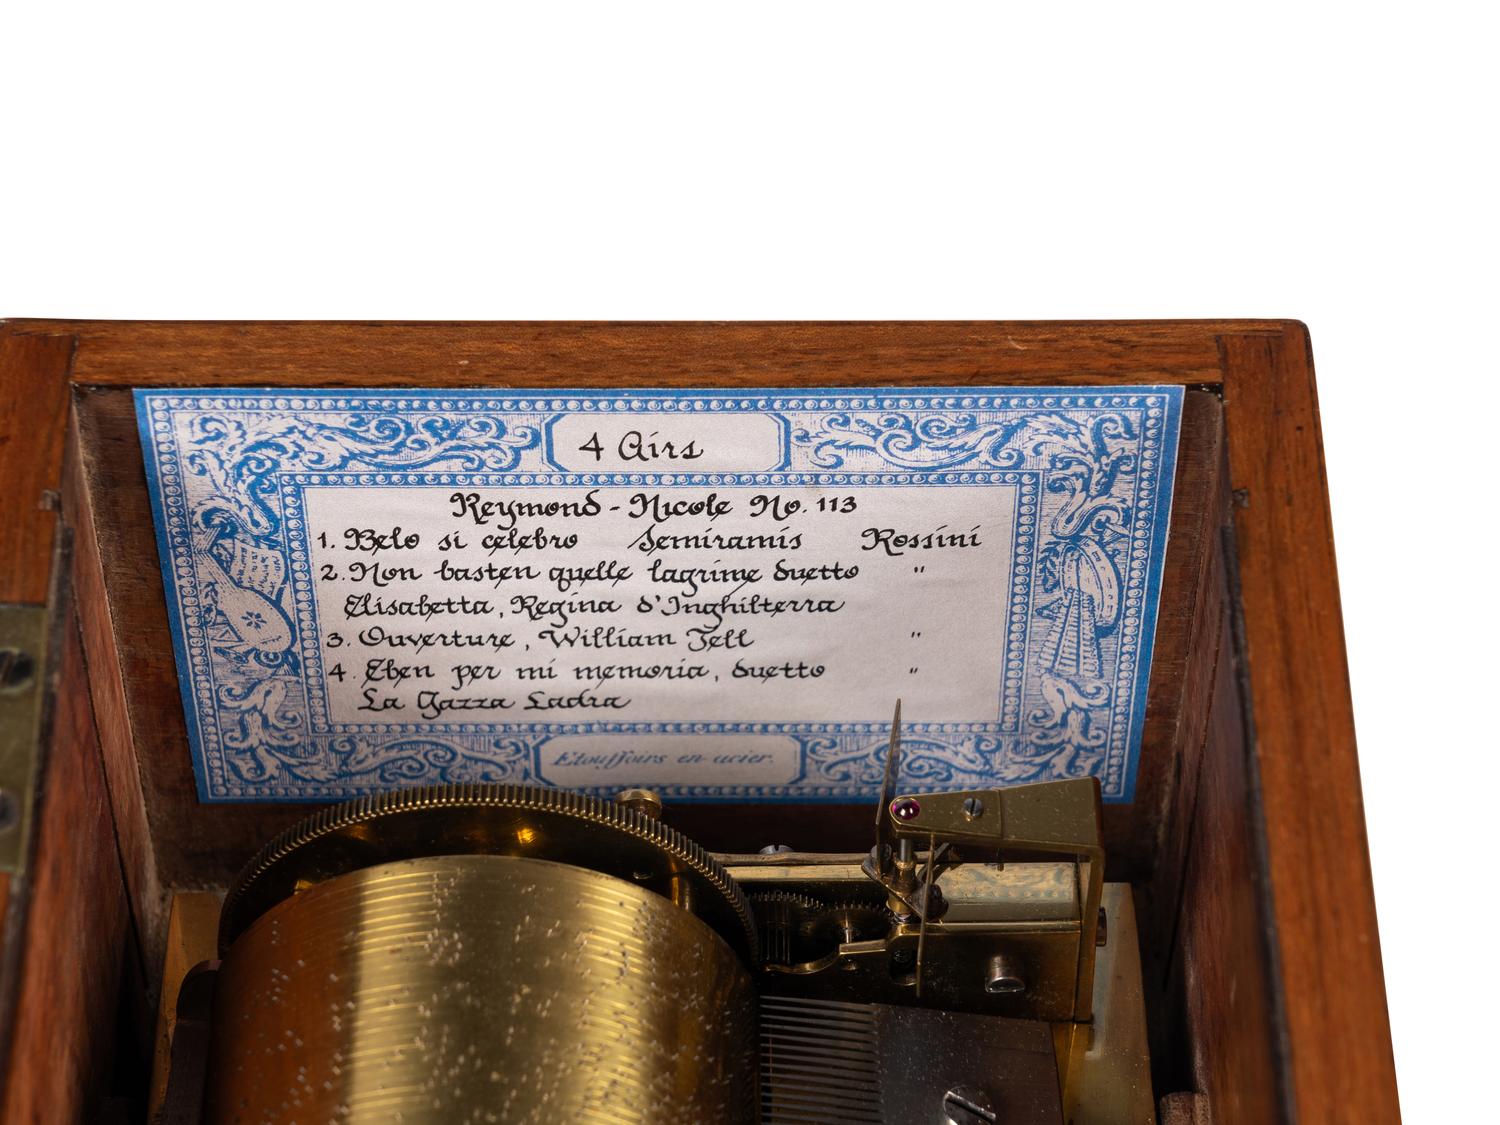 4 Airs
Reymond - Nicole No. 113
1. Belo si celebro Semiramis Rossini
2. Non basten quelle lagrime duetto "
Elisabetta, Regina d'Inghilterra
3. Ouverture, William Tell "
4. Eben per mi memoria, duetto "
La Gazza Ladra
Etouffoirs en acier.